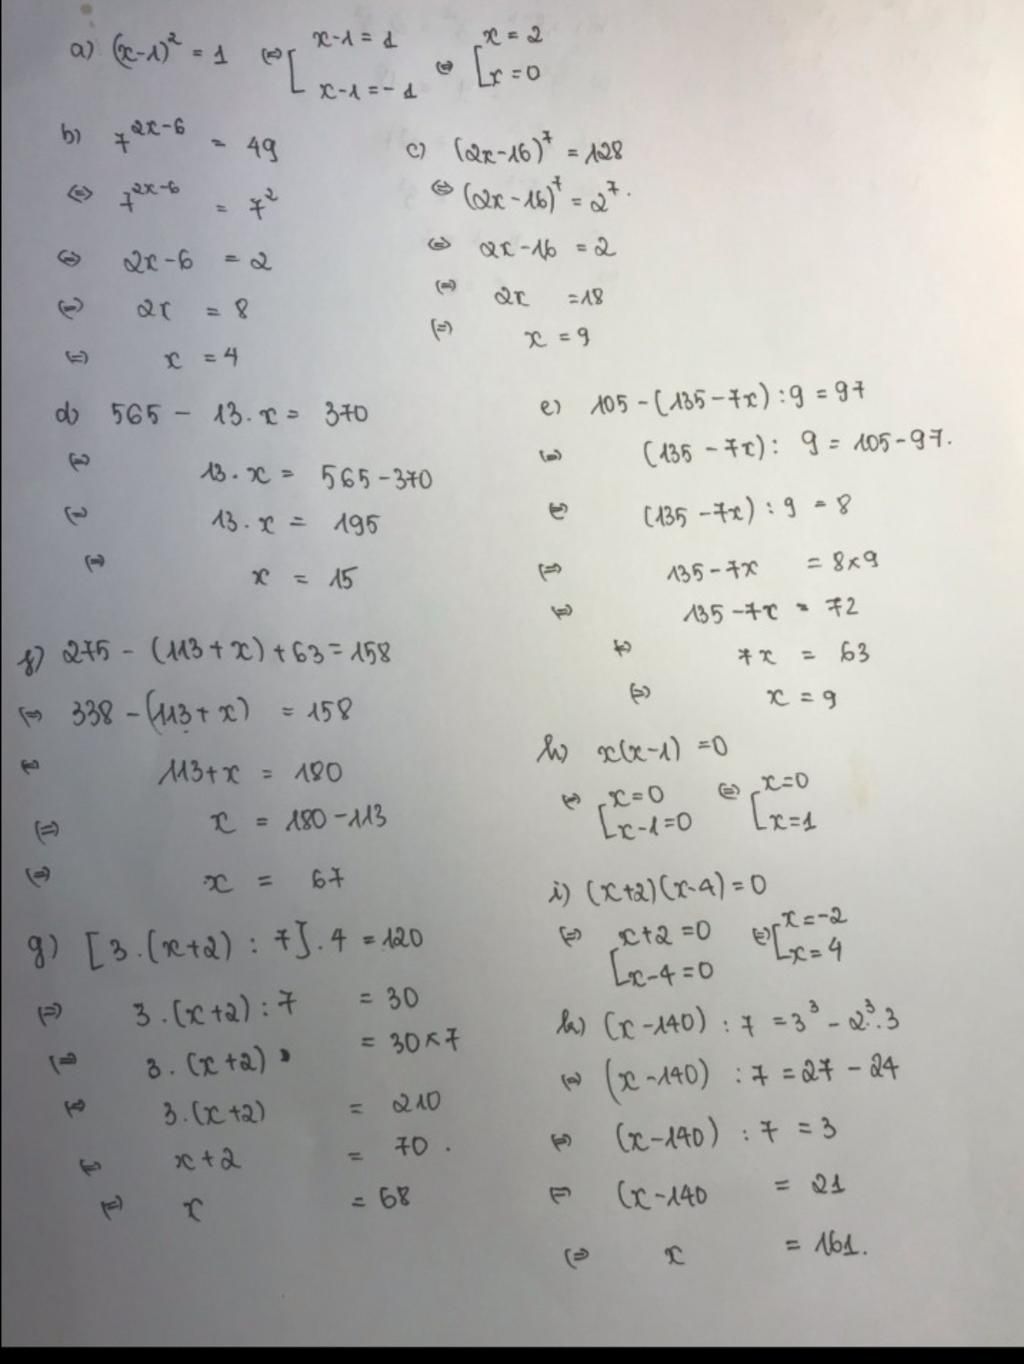 a) (x-1)² = 1 ⇔ [ x-1 = 1 ⇔ [ x = 2
x-1 = -1 x = 0
b) 7^(2x-6) = 49
⇔ 7^(2x-6) = 7²
⇔ 2x-6 = 2
⇔ 2x = 8
⇔ x = 4
c) (2x-16)⁷ = 128
⇔ (2x-16)⁷ = 2⁷.
⇔ 2x-16 = 2
⇔ 2x = 18
⇔ x = 9
d) 565 - 13.x = 370
⇔ 13.x = 565-370
⇔ 13.x = 195
⇔ x = 15
e) 105-(135-7x):9 = 97
⇔ (135-7x): 9 = 105-97.
⇔ (135-7x):9 = 8
⇔ 135-7x = 8x9
⇔ 135-7x = 72
⇔ 7x = 63
⇔ x = 9
f) 275 - (113+x)+63=158
⇔ 338-(113+x) = 158
⇔ 113+x = 180
⇔ x = 180-113
⇔ x = 67
g) [3.(x+2) : 7].4 = 120
⇔ 3.(x+2):7 = 30
⇔ 3.(x+2) = 30x7
⇔ 3.(x+2) = 210
⇔ x+2 = 70.
⇔ x = 68
h) x(x-1) = 0
⇔ [ x=0 ⇔ [ x=0
x-1=0 x=1
i) (x+2)(x-4)=0
⇔ [ x+2=0 ⇔ [ x=-2
x-4=0 x=4
k) (x-140) : 7 = 3³ - 2³.3
⇔ (x-140) : 7 = 27-24
⇔ (x-140) : 7 = 3
⇔ (x-140 = 21
⇔ x = 161.